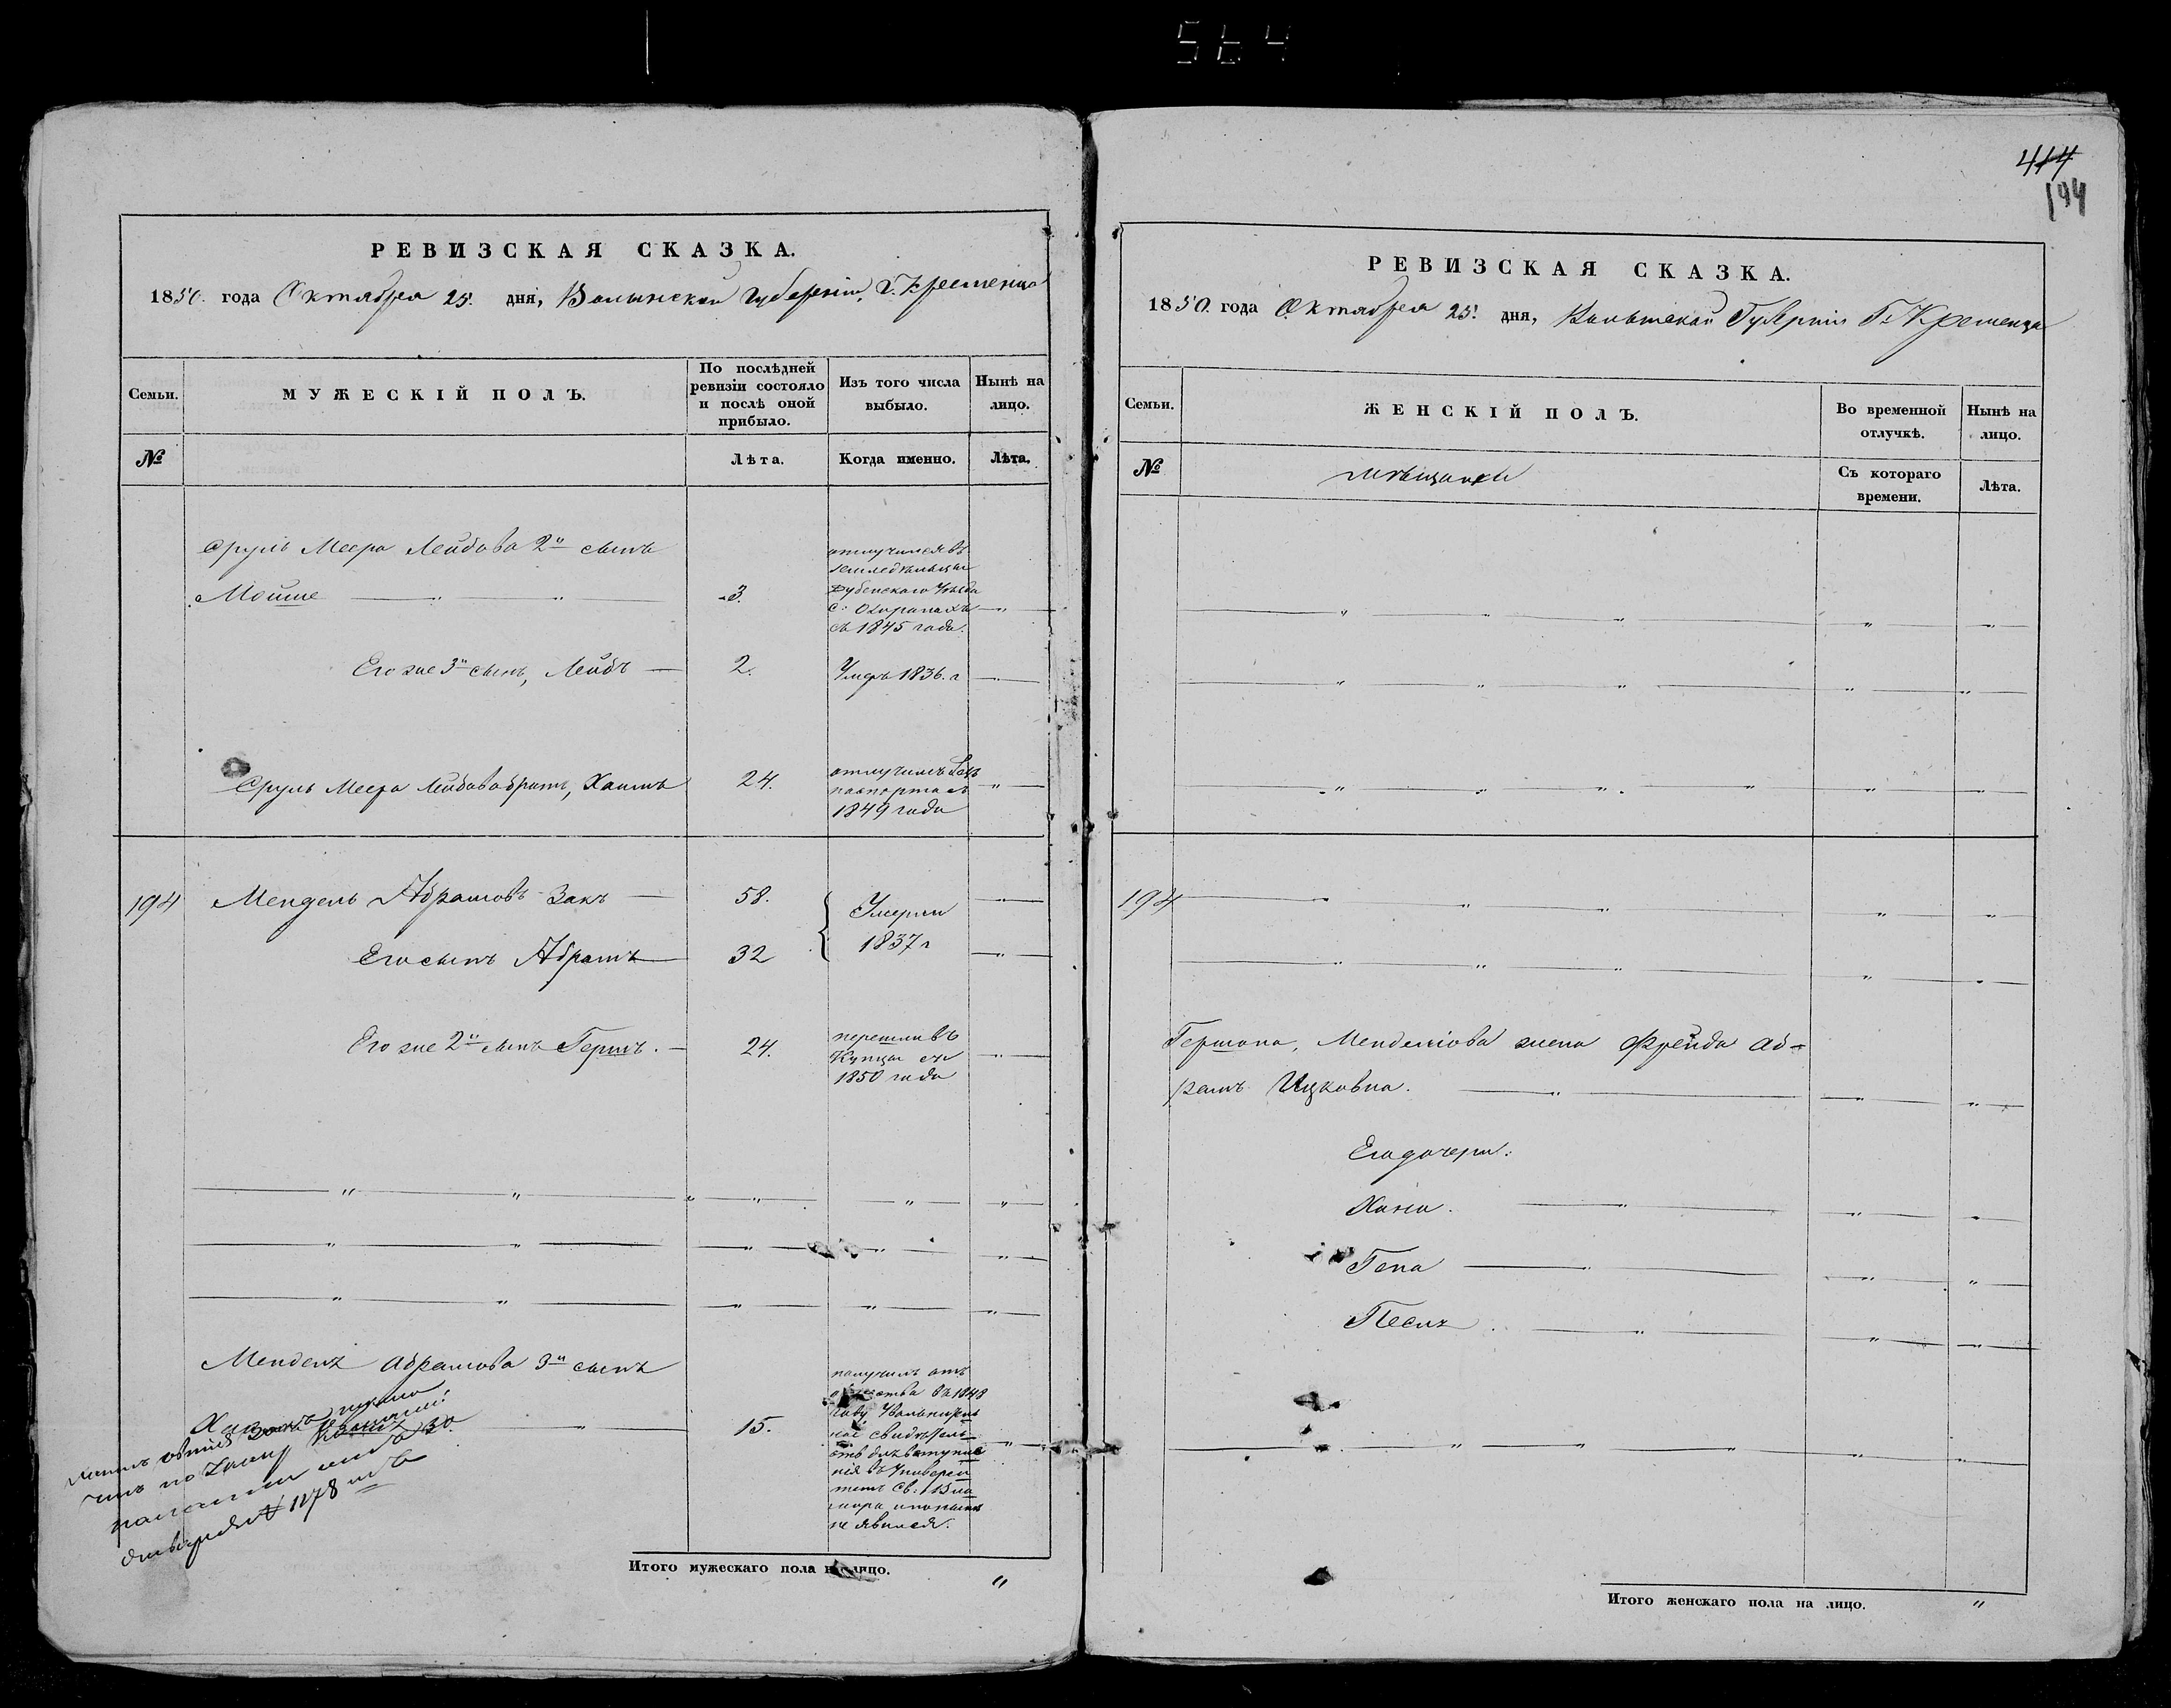 564
РЕВИЗСКАЯ СКАЗКА.
1850. года Октября 25. дня, Волынской губерніи, Г. Кременца
Семьи.
МУЖЕСКІЙ ПОЛЪ.
По послѣдней ревизіи состояло и послѣ оной прибыло.
Изъ того числа выбыло.
Нынѣ на лицо.
№
Лѣта.
Когда именно.
Лѣта.
Сруль Меера Лейбова 2й сынъ
Мойше 3.
отлучился въ
земледѣльцы
Дубенскаго Уѣзда
съ 1845 года.
Его же 3й сынъ, Лейбъ 2. Умеръ 1836. г
Сруль Меера Лейбова братъ, Хаимъ 24.
отлучился безъ
паспорта съ
1849 года
194 Мендель Абрамовъ Закъ 58.
Умерли
1837 г
Его сынъ Абрамъ 32
Его же 2й сынъ Гершъ. 24.
перешли въ
Купцы съ
1850 года
Мендель Абрамова 3й сынъ
15.
получилъ отъ
общества въ 1848
году Увольнитель
ное свидѣтель
ство для вступле
нія въ Универси
тетъ Св: Влади
мира, и понынѣ
не явился.
по Указу Казенной
палаты
№ 1178
Итого мужескаго пола на лицо. "
414
194
РЕВИЗСКАЯ СКАЗКА.
1850. года Октября 25. дня, Волынской Губерніи Г. Кременца
Семьи.
ЖЕНСКІЙ ПОЛЪ.
Во временной отлучкѣ.
Нынѣ на лицо.
№
мѣщанки
Съ котораго времени.
Лѣта.
194
Гершона, Менделіова жена Фрейда Аб-
рамъ Ицковна.
Его дочери:
Хана.
Гена
Песя
Итого женскаго пола на лицо. "